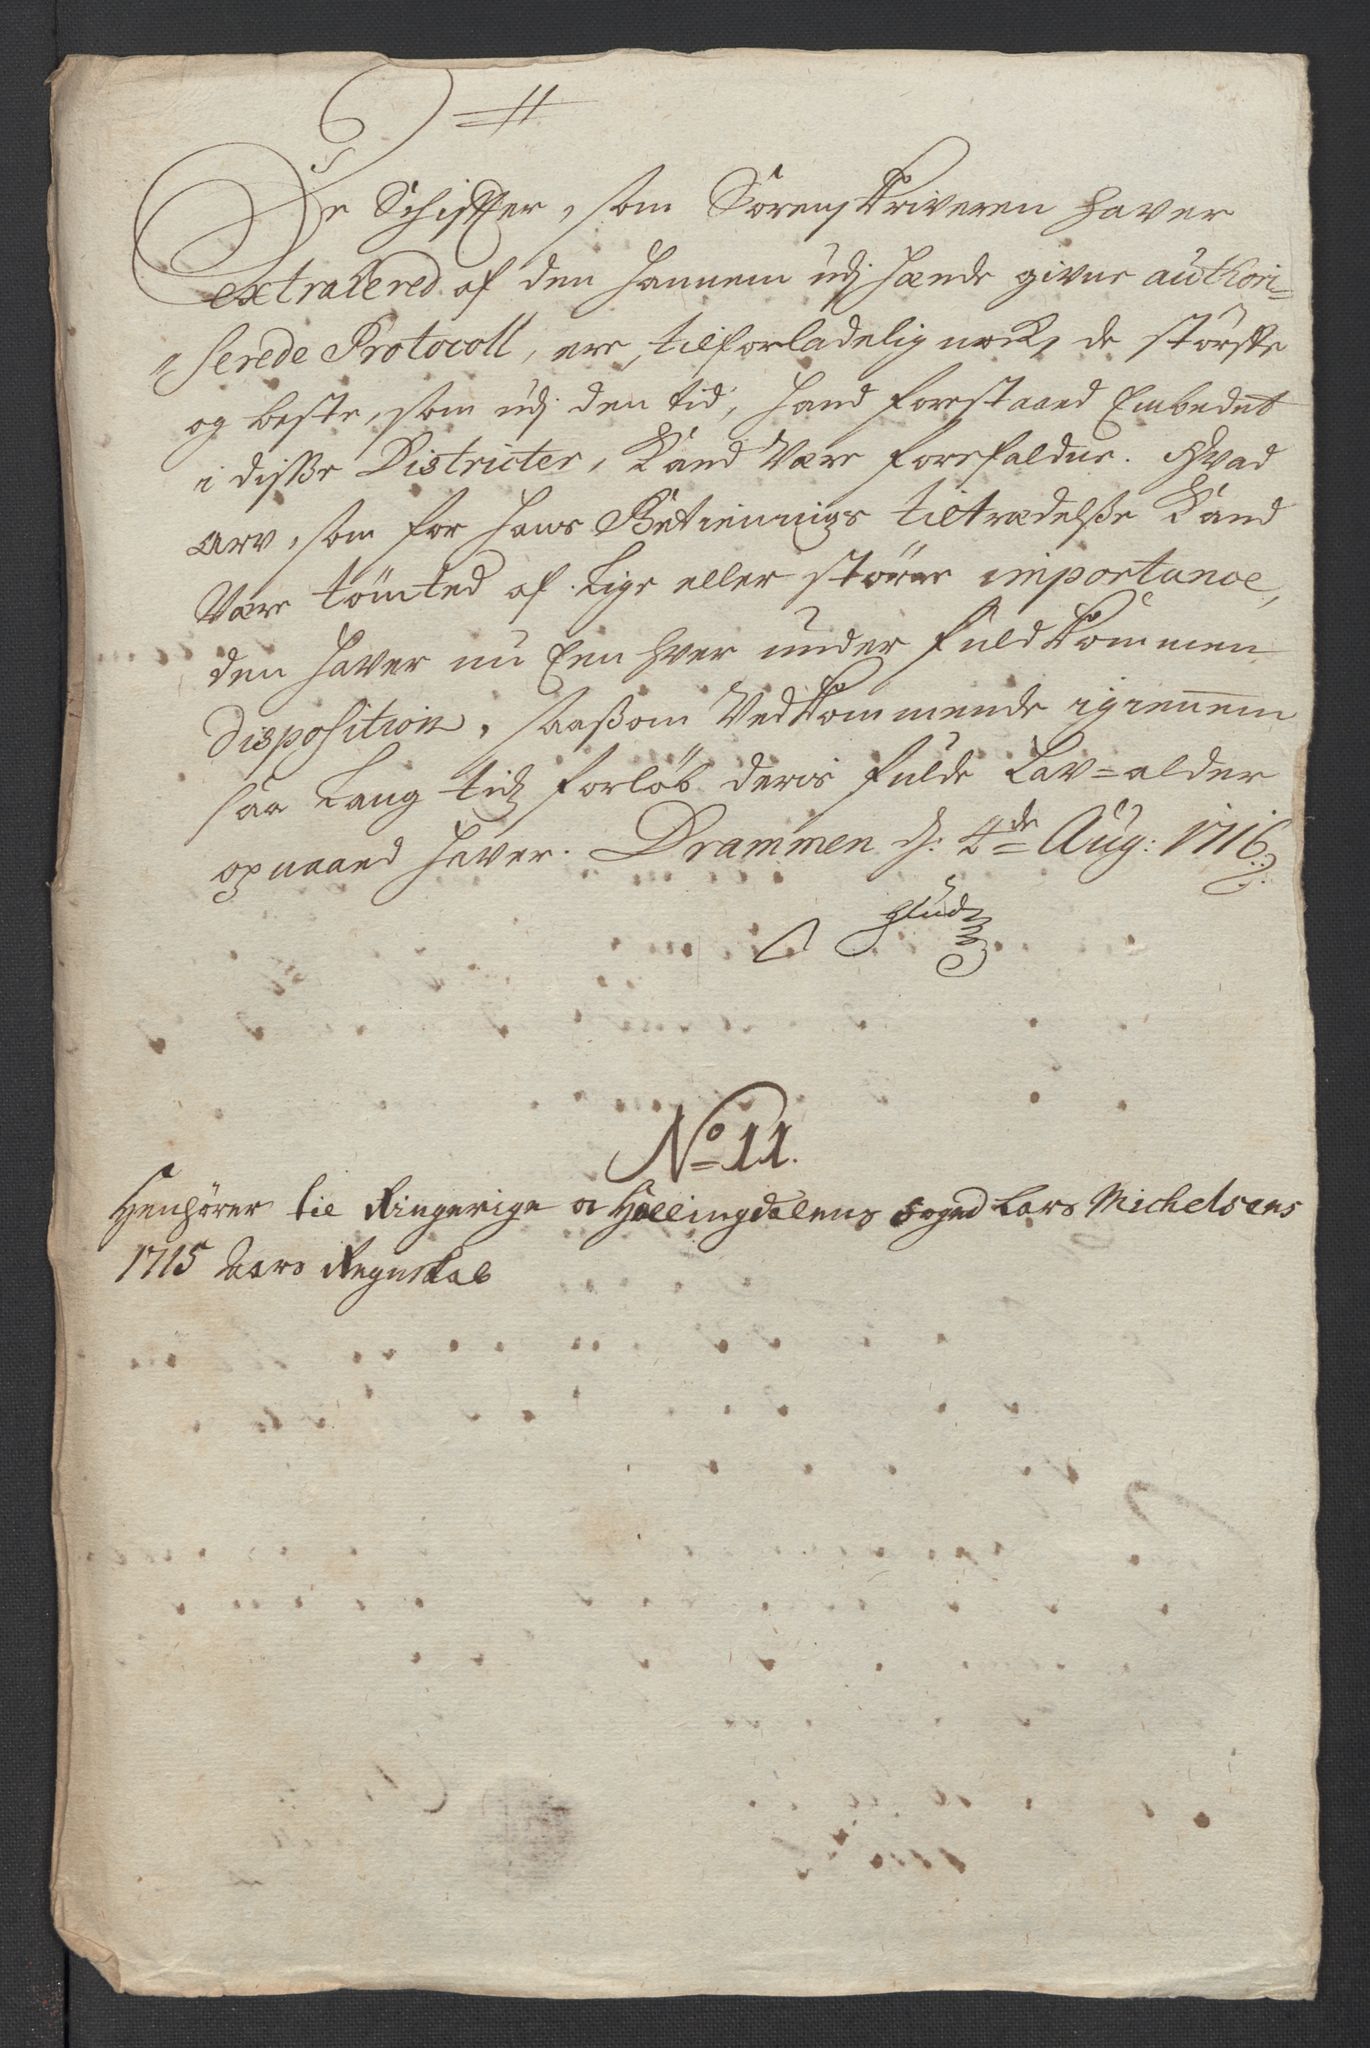 De Schiffter, som Sorenskriveren haver
extrahered af den hannem udj hænde givne authori=
serede Protocoll, ere tilforladelig nock, de störste
og beste, som udj den tid, hand forestaaed Embedet
i disse Districter, kand være forefaldne. Hvad
arv, som for hans Betiennings tiltrædelsse kand
være tömted af lige eller större importance,
den haver nu Een hver under fuldkommen
disposition, saasom vedkommende igiennem
saa lang tids forlöb deris fulde Lav=alder
opnaaed haver. Drammen d: 4de Aug: 1716
No 11.
Henhörer til Ringerige og Hallingdalens foged Lars Michelsens
1715 Aars Regnskab